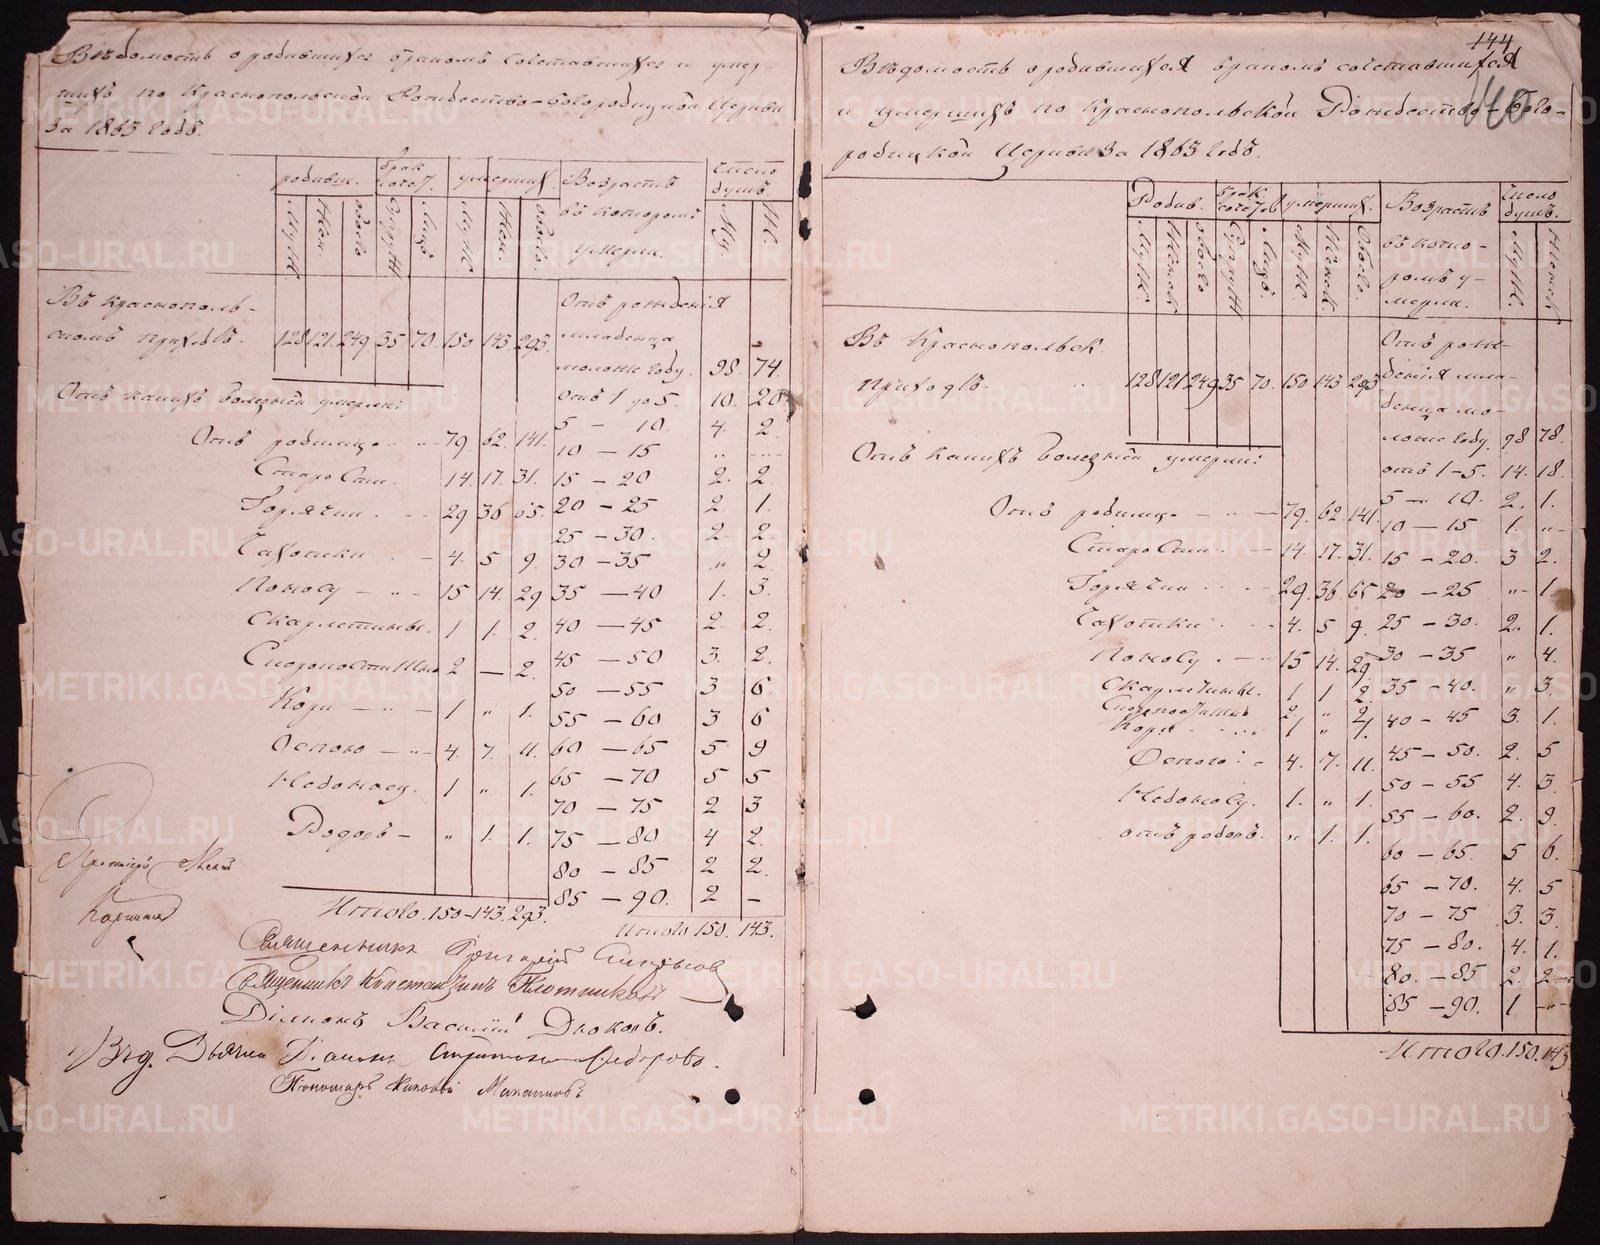 Вѣдомость о родившихся бракомъ сочетавшихся и умер-
шихъ по Краснопольской Рождество-Богородицкой Церкви
за 1863 годъ.
родивш. брак. сочет. умерших. Возрастъ въ котором умерли. Число душъ
Муж. Жен. обоего Супруж. Лицъ Муж. Жен. обоего. Му. Ж.
Въ Краснополь-
скомъ приходѣ. 128 121 249 35 70. 150 143 293.
Отъ рожденія
младенца
моложе году. 98. 74.
Отъ какихъ болезней умерли:
Отъ 1 до 5. 10. 20
Отъ родимца 79 62 141.
5 — 10. 4. 2
10 — 15 „ ...
Старости. 14. 17. 31.
15 — 20 2. 2.
Горячки 29 36 65.
20 — 25 2 1.
25 — 30. 2. 2
Чахотки 4. 5 9.
30 — 35 „ 2.
Поносу 15 14. 29
35 — 40 1. 3.
Скарлетины. 1 1. 2.
40 — 45 2. 2.
45 — 50 3. 2.
Скоропостижно 2 — 2.
50 — 55 3 6
Кори 1 „ 1.
55 — 60 3 6
Оспою 4. 7. 11.
60 — 65 5 9
Недоносу. 1 „ 1.
65 — 70 5 5
70 — 75 2 3
Родовъ — „ 1. 1.
75 — 80. 4 2.
80 — 85 2 2.
85 — 90. 2 —
Итого. 150 — 143. 293.
Итого 150. 143.
Протоіерей
Священникъ Григорій
Священникъ Константинъ Плотниковъ
Діаконъ Василій Дьяковъ.
Дьячка Діаконъ Сидоровъ.
Пономарь
144
Вѣдомость о родившихся бракомъ сочетавшихся
и умершихъ по Краснопольской Рождество-Бого-
родицкой Церкви за 1863 годъ.
Родив. Брак. сочетав умерших. Возрастъ въ кото-
ромъ у-
мерли. Число душъ.
Муж. Женск обоего Супруж Лицъ. Муж. Женск. Обоего. Муж. Женск
Въ Краснопольск.
приходѣ. 128 121 249 35 70. 150 143 293
Отъ рож-
денія мла-
денца мо-
ложе году 98 78.
Отъ какихъ болезней умерли:
отъ 1 — 5. 14. 18.
5 — 10. 2. 1.
Отъ родимца 79. 62. 141.
10 — 15 1. „
Старости 14. 17. 31.
15 — 20. 3 2.
Горячки 29. 36. 65
20 — 25 „ 1.
Чахотки 4. 5 9.
25 — 30. 2. 1.
Поносу 15 14. 29.
30 — 35 „ 4.
Скарлетины. 1. 1 2.
35 — 40. „ 3.
Скоропостижно 2. „ 2
Кори 1 „ 1.
40 — 45 3. 1.
Оспою 4. 7. 11.
45 — 50. 2. 5
50 — 55 4. 3.
Недоносу. 1. „ 1.
55 — 60. 2. 9.
отъ родовъ. „ 1. 1.
60 — 65. 5 6.
65 — 70. 4. 5
70 — 75 3. 3.
75 — 80. 4. 1.
80. — 85 2. 2
85 — 90. 1 —
Итого. 150. 143
METRIKI.GASO-URAL.RU